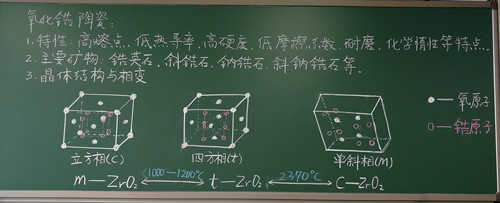 氧化锆陶瓷:
1.特性:高熔点、低热导率、高硬度、低摩擦系数、耐磨、化学惰性等特点。
2.主要矿物:锆英石、斜锆石、钠锆石、斜钠锆石等。
3.晶体结构与相变
氧原子
锆原子
立方相(C) 四方相(t) 单斜相(M)
m—ZrO₂ 1000—1200℃ t—ZrO₂ 2370℃ C—ZrO₂